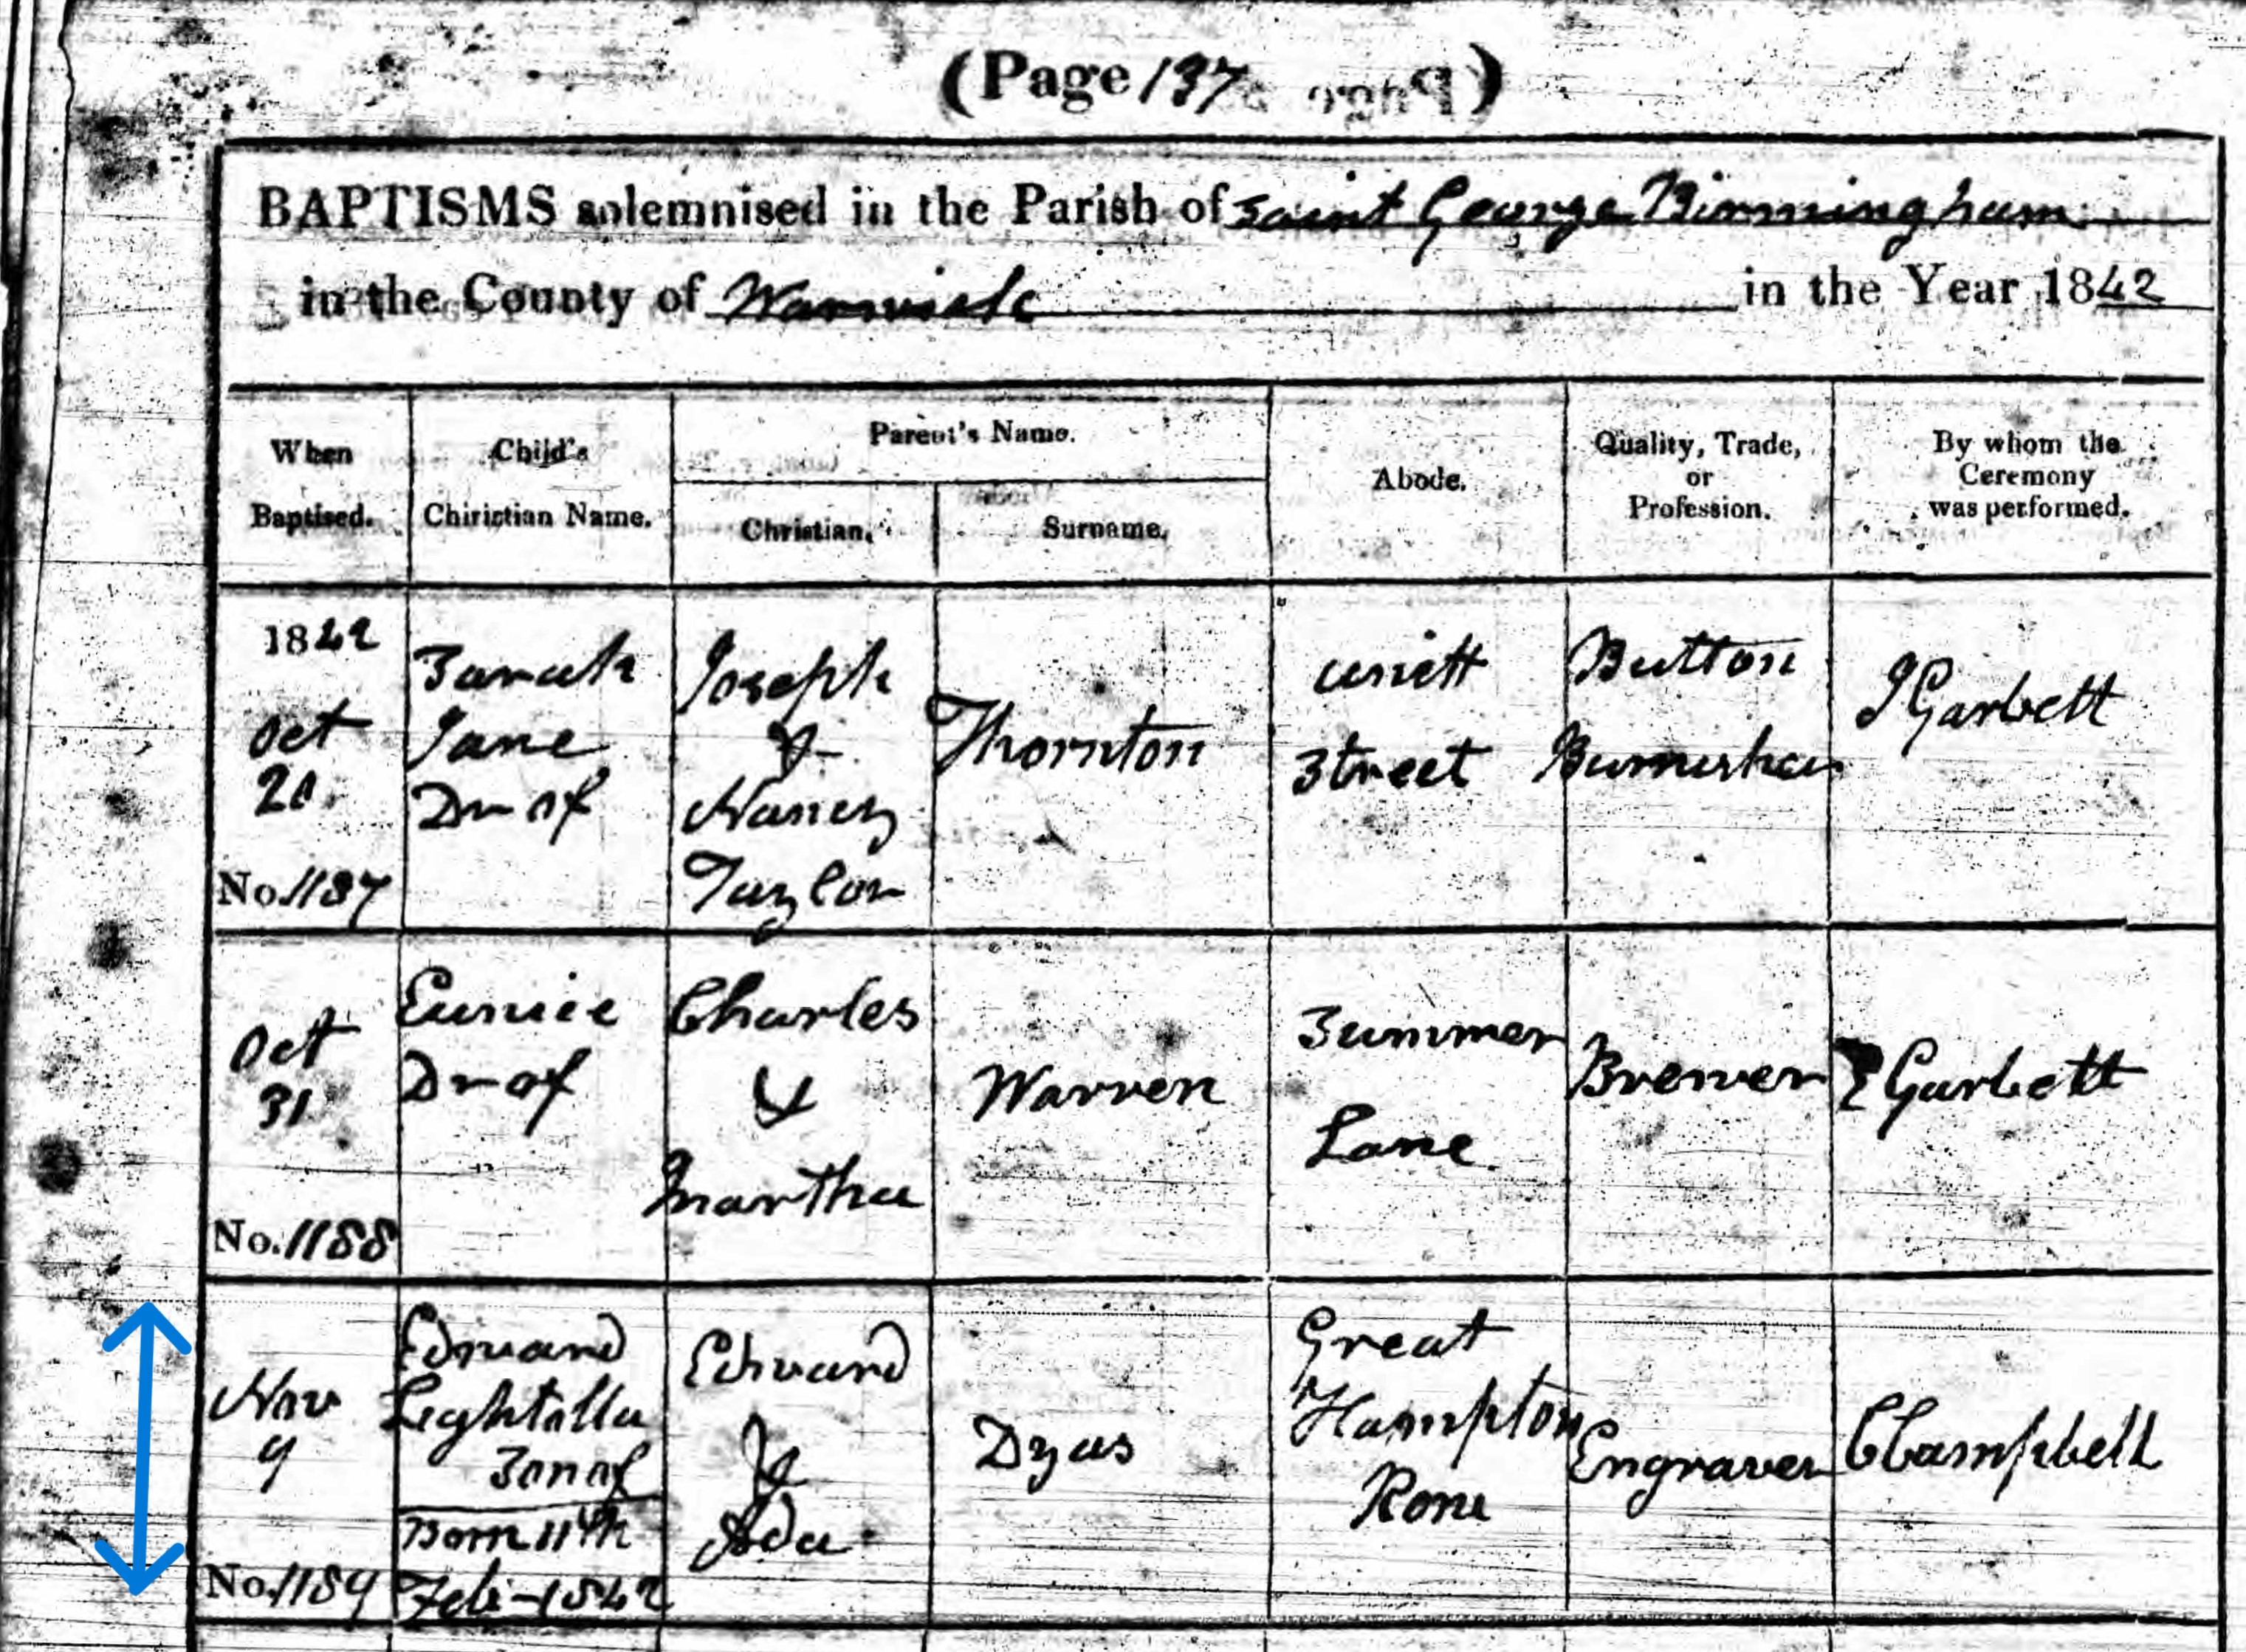 (Page 137)
BAPTISMS solemnised in the Parish of Saint George Birmingham
in the County of Warwick in the Year 1842
When Baptised.
Child's Chiristian Name.
Parent's Name.
Christian.
Surname.
Abode.
Quality, Trade, or Profession.
By whom the Ceremony was performed.
1842
Oct
20
No. 1187
Sarah
Jane
Dr of
Joseph
&
Nancy
Taylor
Thornton
Unett
Street
Button
Burnisher
J Garbett
Oct
31
No. 1188
Eunice
Dr of
Charles
&
Martha
Warren
Summer
Lane
Brewer
Garbett
Nov
9
No. 1189
Edward
Son of
Born 11th
Feb - 1842
Edward
&
Ada
Dyas
Great
Hampton
Row
Engraver
C Campbell